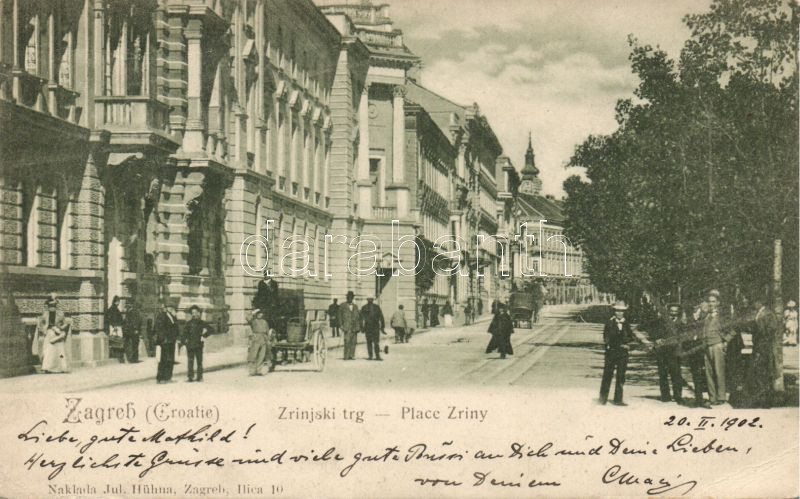 darabanth
Zagreb (Croatie) Zrinjski trg — Place Zriny
20. II. 1902.
Liebe, gute Mathild!
Herzlichste Grüsse und viele gute Bussi an Dich und Deine Lieben,
von Deinem
Naklada Jul. Hühna, Zagreb, Ilica 10